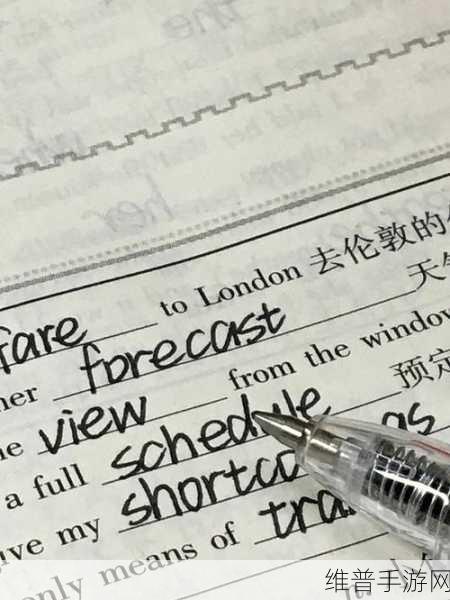 the
her
fare to London 去伦敦的
her forecast 天气
view from the window
a full schedule 预定
ive my shortco as
only means of tra
维普手游网